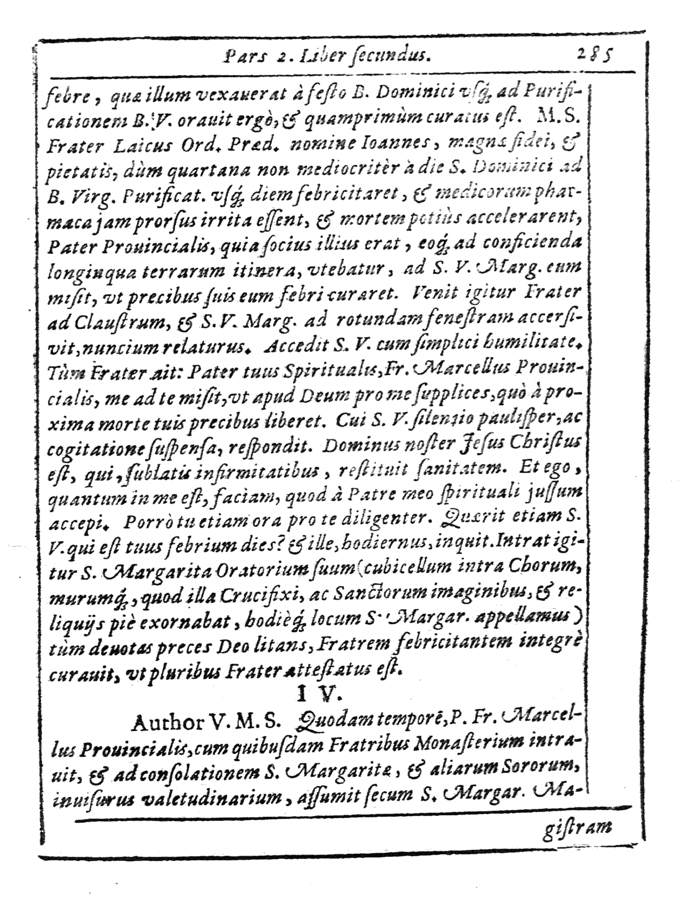 Pars 2. Liber secundus. 285
febre, quæ illum vexauerat à festo B. Dominici vsq́; ad Purifi-
cationem B. V. orauit ergò, & quamprimùm curatus est. M. S.
Frater Laicus Ord. Præd. nomine Ioannes, magnæ fidei, &
pietatis, dùm quartana non mediocritèr à die S. Dominici ad
B. Virg. Purificat. vsq́; diem febricitaret, & medicorum phar-
maca jam prorsus irrita essent, & mortem potiùs accelerarent,
Pater Prouincialis, quia socius illius erat, eoq́; ad conficienda
longinqua terrarum itinera, vtebatur, ad S. V. Marg. eum
misit, vt precibus suis eum febri curaret. Venit igitur Frater
ad Claustrum, & S. V. Marg. ad rotundam fenestram accersi-
vit, nuncium relaturus. Accedit S. V. cum simplici humilitate.
Tùm Frater ait: Pater tuus Spiritualis, Fr. Marcellus Prouin-
cialis, me ad te misit, vt apud Deum pro me supplices, quò à pro-
xima morte tuis precibus liberet. Cui S. V. silenzio paulisper, ac
cogitatione suspensa, respondit. Dominus noster Jesus Christus
est, qui, sublatis infirmitatibus, restituit sanitatem. Et ego,
quantum in me est, faciam, quod à Patre meo spirituali jussum
accepi. Porrò tu etiam ora pro te diligenter. Quærit etiam S.
V. qui est tuus febrium dies? & ille, hodiernus, inquit. Intrat igi-
tur S. Margarita Oratorium suum (cubicellum intra Chorum,
murumq́;, quod illa Crucifixi, ac Sanctorum imaginibus, & re-
liquijs piè exornabat, hodièq́; locum S. Margar. appellamus)
tùm deuotas preces Deo litans, Fratrem febricitantem integrè
curauit, vt pluribus Frater attestatus est.
I V.
Author V. M. S. Quodam temporé, P. Fr. Marcel-
lus Prouincialis, cum quibusdam Fratribus Monasterium intra-
uit, & ad consolationem S. Margaritæ, & aliarum Sororum,
inuisurus valetudinarium, assumit secum S. Margar. Ma-
gistram